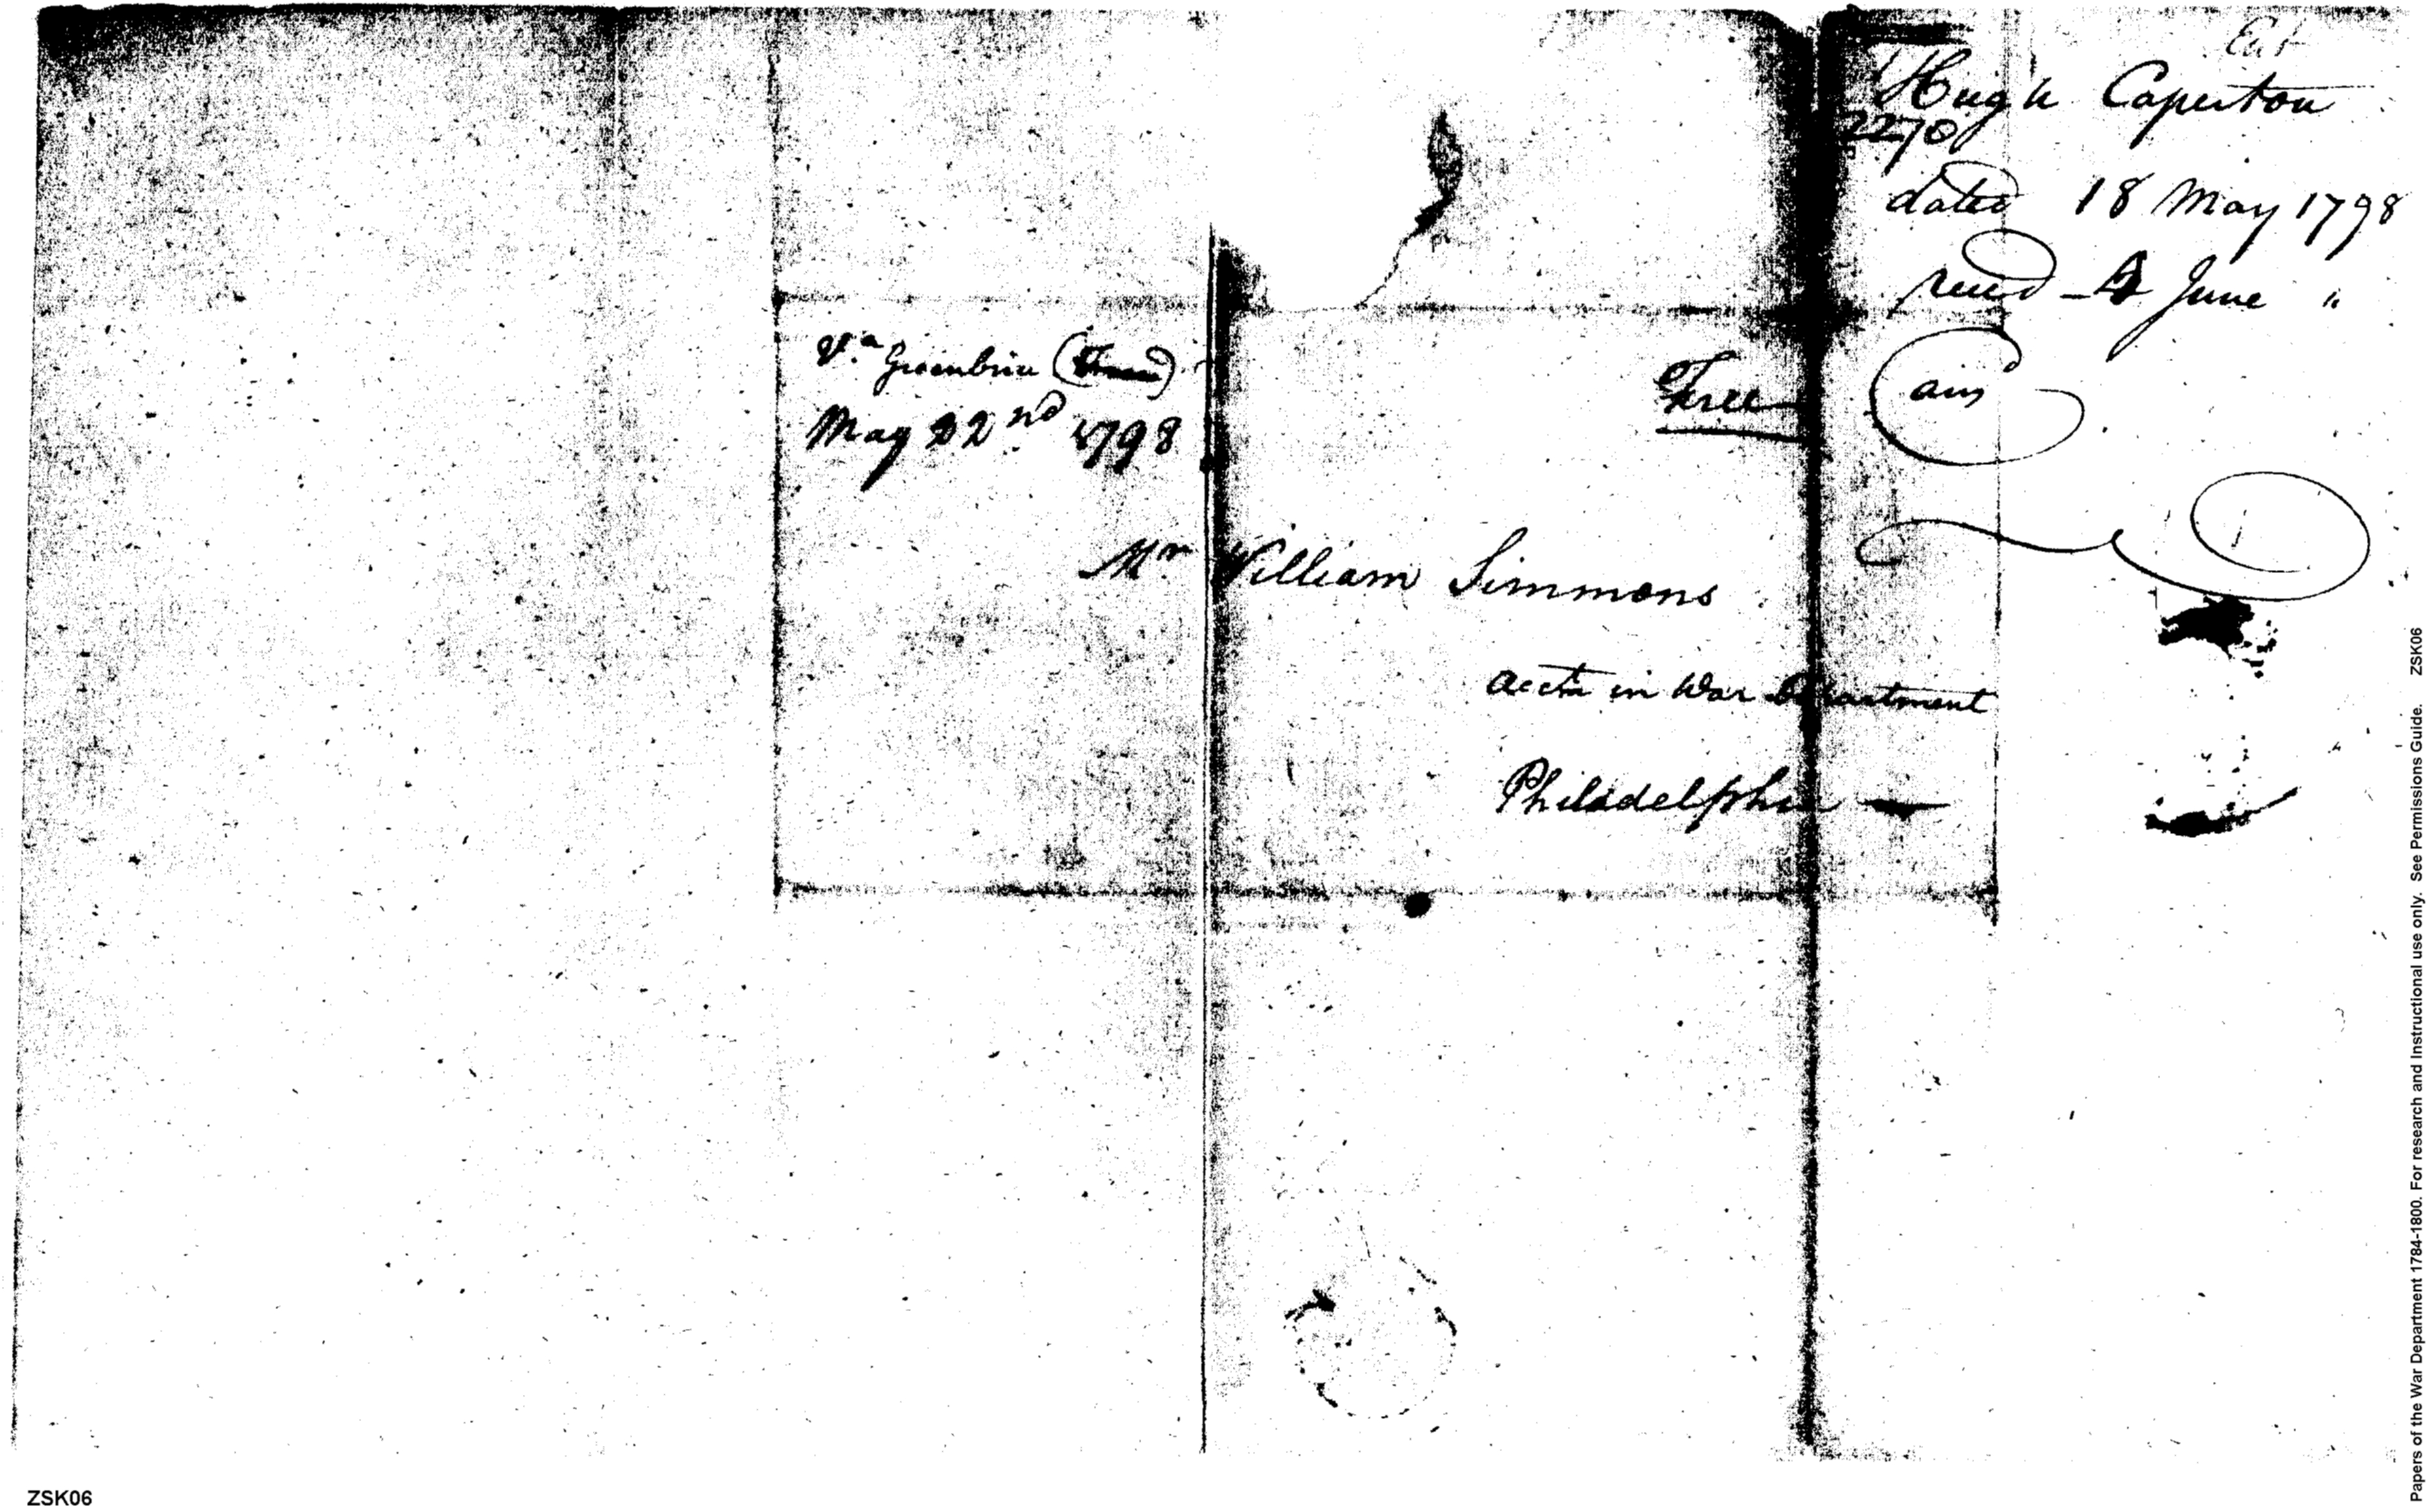 Va Greenbrier
May 22nd 1798
Free
Mr William Simmons
Acctn in War Department
Philadelphia
Ent
Hugh Caperton
2270
dated 18 May 1798
recd 4 June "
Papers of the War Department 1784-1800. For research and Instructional use only. See Permissions Guide. ZSK06
ZSK06